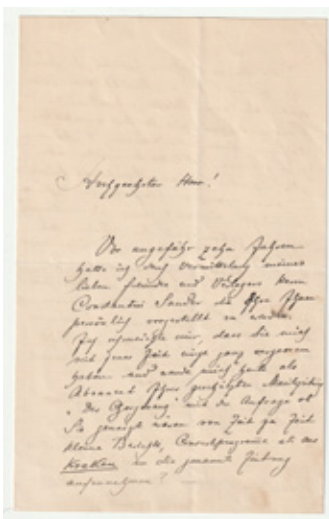 Hochgeehrter Herr!
Vor ungefähr zehn Jahren
hatte ich durch Vermittelung meines
lieben Freundes und Verlegers Herrn
Constantin Sander die Ehre Ihnen
persönlich vorgestellt zu werden.
Ich schmeichle mir, dass Sie mich
seit jener Zeit nicht ganz vergessen
haben und wende mich heute als
Abonnent Ihrer geschätzten Musikzeitung
" Der " mit der Anfrage ob
Sie geneigt wären von Zeit zu Zeit
kleine Berichte, Concertprogramme etc. aus
Krakau in die genannte Zeitung
aufzunehmen? —